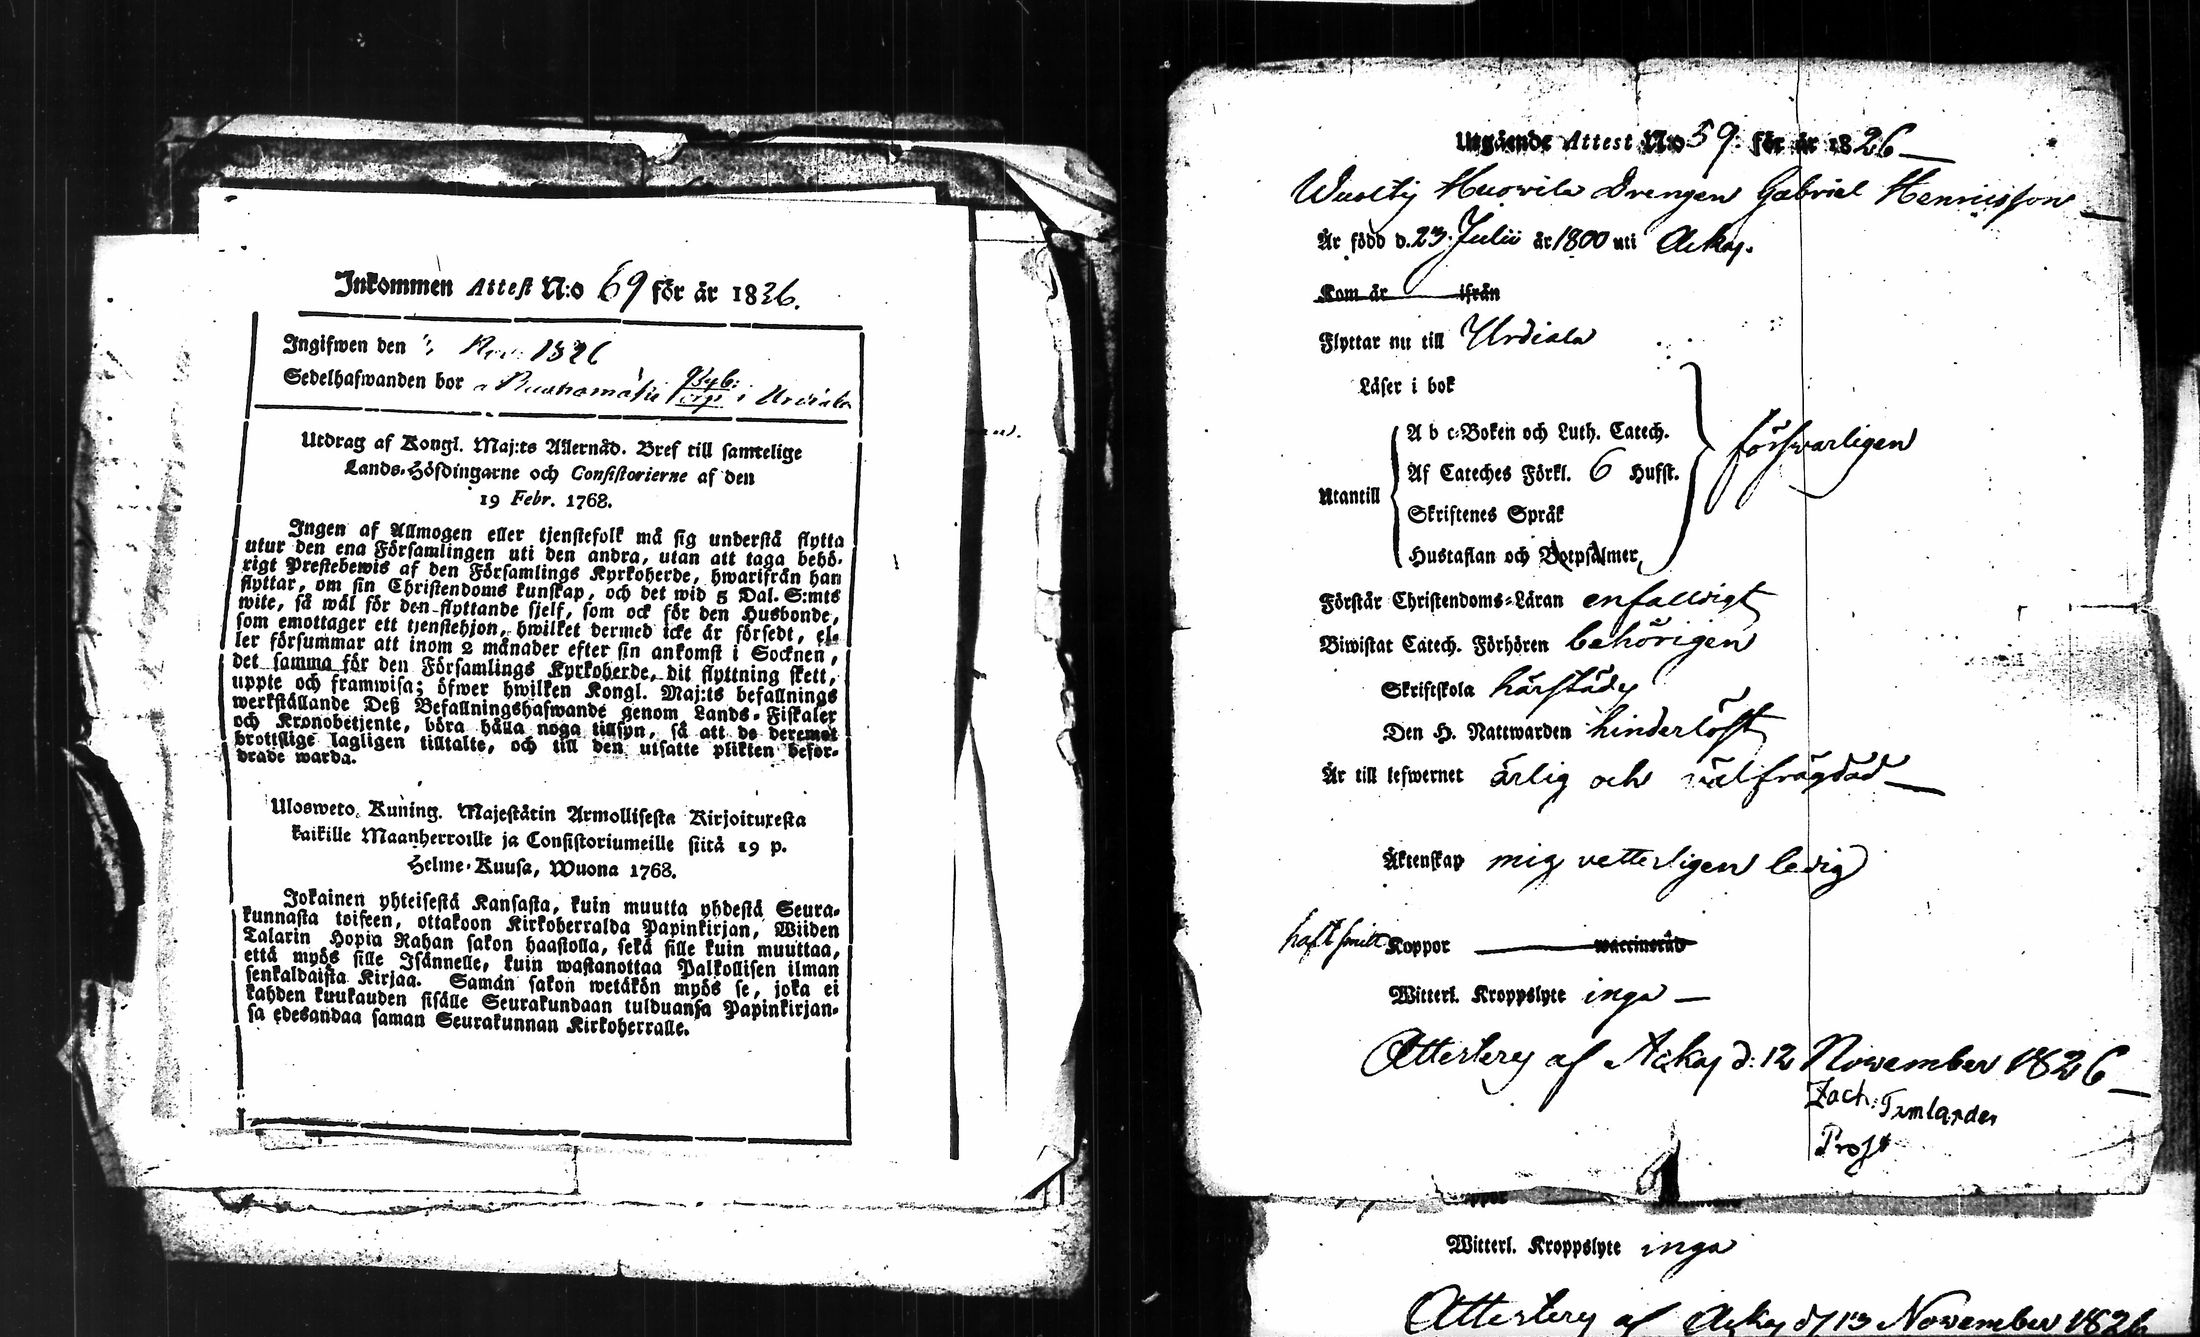 Inkommen Attest N:o 69 för år 1826.
Ingifwen den 1826
Sedelhafwanden bor i Urdiala
Utdrag af Kongl. Maj:ts Allernåd. Bref till samtelige
Lands-Höfdingarne och Consistorierne af den
19 Febr. 1768.
Ingen af Allmogen eller tjenstefolk må sig understå flytta
utur den ena Församlingen uti den andra, utan att taga behö-
rigt Prestebewis af den Församlings Kyrkoherde, hwarifrån han
flyttar, om sin Christendoms kunskap, och det wid 5 Dal. S:mts
wite, så wäl för den flyttande sjelf, som ock för den Husbonde,
som emottager ett tjenstehjon, hwilket dermed icke är försedt, el-
ler försummar att inom 2 månader efter sin ankomst i Socknen,
det samma för den Församlings Kyrkoherde, dit flyttning skett,
uppte och framwisa; öfwer hwilken Kongl. Maj:ts befallnings
werkställande Deß Befallningshafwande genom Lands-Fiskaler
och Kronobetjente, böra hålla noga tillsyn, så att de deremot
brottslige lagligen tilltalte, och till den utsatte plikten beför-
drade warda.
Ulosweto Kuning. Majestätin Armollisesta Kirjoituxesta
kaikille Maanherroille ja Consistoriumeille siitä 19 p.
Helme-Kuusa, Wuona 1768.
Jokainen yhteisestä Kansasta, kuin muutta yhdestä Seura-
kunnasta toiseen, ottakoon Kirkoherralda Papinkirjan, Wiiden
Talarin Hopia Rahan sakon haastolla, sekä sille kuin muuttaa,
että myös sille Isännelle, kuin wastanottaa Palkollisen ilman
senkaldaista Kirjaa. Samän sakon wetäkön myös se, joka ei
kahden kuukauden sisälle Seurakundaan tulduansa Papinkirjan-
sa edesandaa saman Seurakunnan Kirkoherralle.
Utgående Attest N:o 59. för år 1826
Huovila Drengen Gabriel Henricsson
Är född d. 23 Julii år 1800 uti Ackas.
Kom år ifrån
Flyttar nu till Urdiala
Läser i bok
A b c-Boken och Luth. Catech.
försvarligen
Af Cateches Förkl. 6 Hufst.
Utantill
Skriftenes Språk
Hustaflan och Botpsalmer,
Förstår Christendoms-Läran enfaldigt
Biwistat Catech. Förhören behörigen
Skriftskola härstädes
Den H. Nattwarden hinderlöst
Är till lefwernet ärlig och välfrägdad
Äktenskap mig vetterligen ledig
haft Koppor waccinerad
Witterl. Kroppslyte inga
Attesteras af Ackas d: 12 November 1826
Zach:
Prost
Witterl. Kroppslyte inga
Attesteras af Ackas d. 13 November 1826